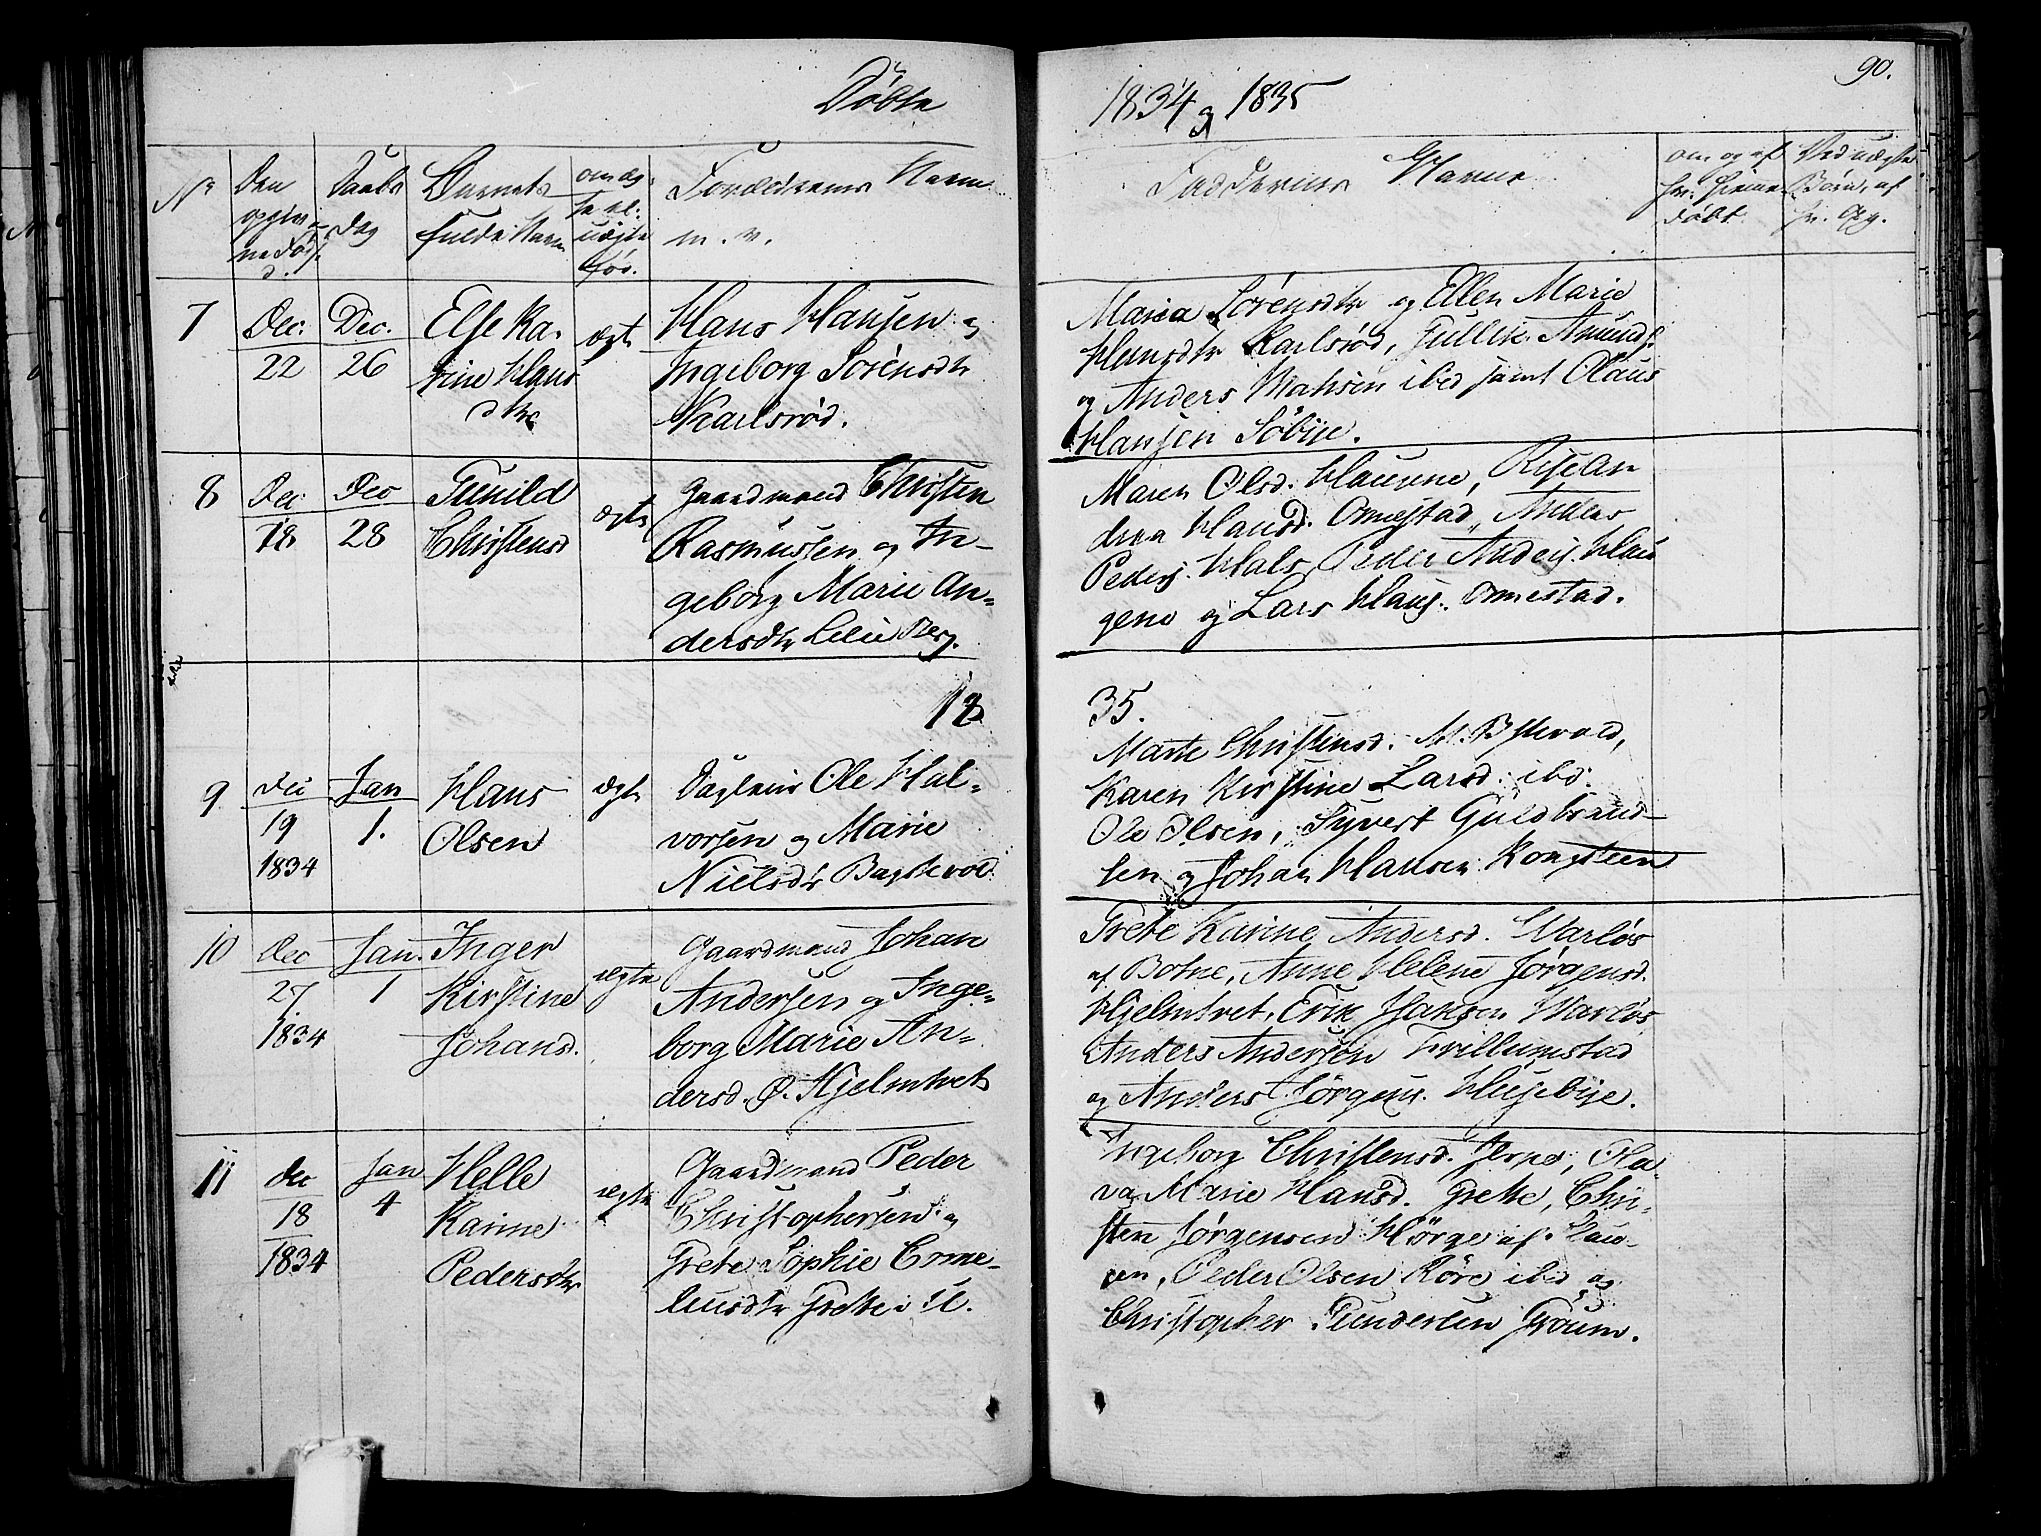 Døbte
1834 og 1835
90.
No
Den opgivne Føds. d.
Daabs dag
Barnets fulde Navn
om ægte el. uægte fød.
Forældrenes Navne m. v.
Faddernes Navne
om og af hv. hjemmedøbt
Ved uægte Børn, af hv. Opg.
7
Dec. 22
Dec. 26
Else Ka-
rine Hans
dtr
ægt
Hans Hansen og
Ingeborg Sørensdtr
Karlsrød.
Maria Sørensdtr og Ellen Marie
Hansdtr Karlsrød, Gullik Amunds.
og Anders Mathsen ibed samt Olaus
Hansen Søbye.
8
Dec 18
Dec 28
Gunild
Christensd
ægte
Gaardmand Christen
Rasmussen og In-
geborg Marie An-
dersdtr Berg.
Maren Olsd. Haunne,
Hansd. Omestad, Anders
Peders. Hals, Peder Anders. Hau
gene og Lars Hans. Omestad.
18
35.
9
Dec 19 1834
Jan 1.
Hans
Olsen
ægte
Ole Hal-
vorsen og Marie
Nielsdtr
Marte Christensd.
Karen Kirstine Larsd. ibd.
Ole Olsen, Syvert Guldbrand-
sen og Johan Hansen Kongsteen
10
Dec 27 1834
Jan. 1
Inger
Kirstine
Johansd.
ægte
Gaardmand Johan
Andersen og Inge-
borg Marie An-
dersd. Ø. Hjelmtvet
Grete Karine Andersd. Warløs
af Botne, Anne Helene Jørgensd.
Hjelmtvet, Erik Hansen Warløs
Anders Andersen Trillumstad
og Anders Jørgens. Husebye.
11
Dec 18 1834
Jan 4
Helle
Karine
Pedersdtr
ægte
Gaardmand Peder
Christophersen og
Grete Sophie Corne-
liusdtr Grette
Ingeborg Christensd. Jerpe, Ola-
va Marie Hansd. Grette, Chri-
sten Jørgensen Hørge af
Peder Olsen Røre ibed og
Christopher Gundersen